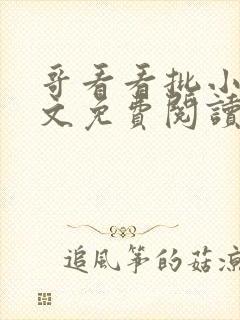 哥看看批小
文免費閱讀
追風筝的菇凉